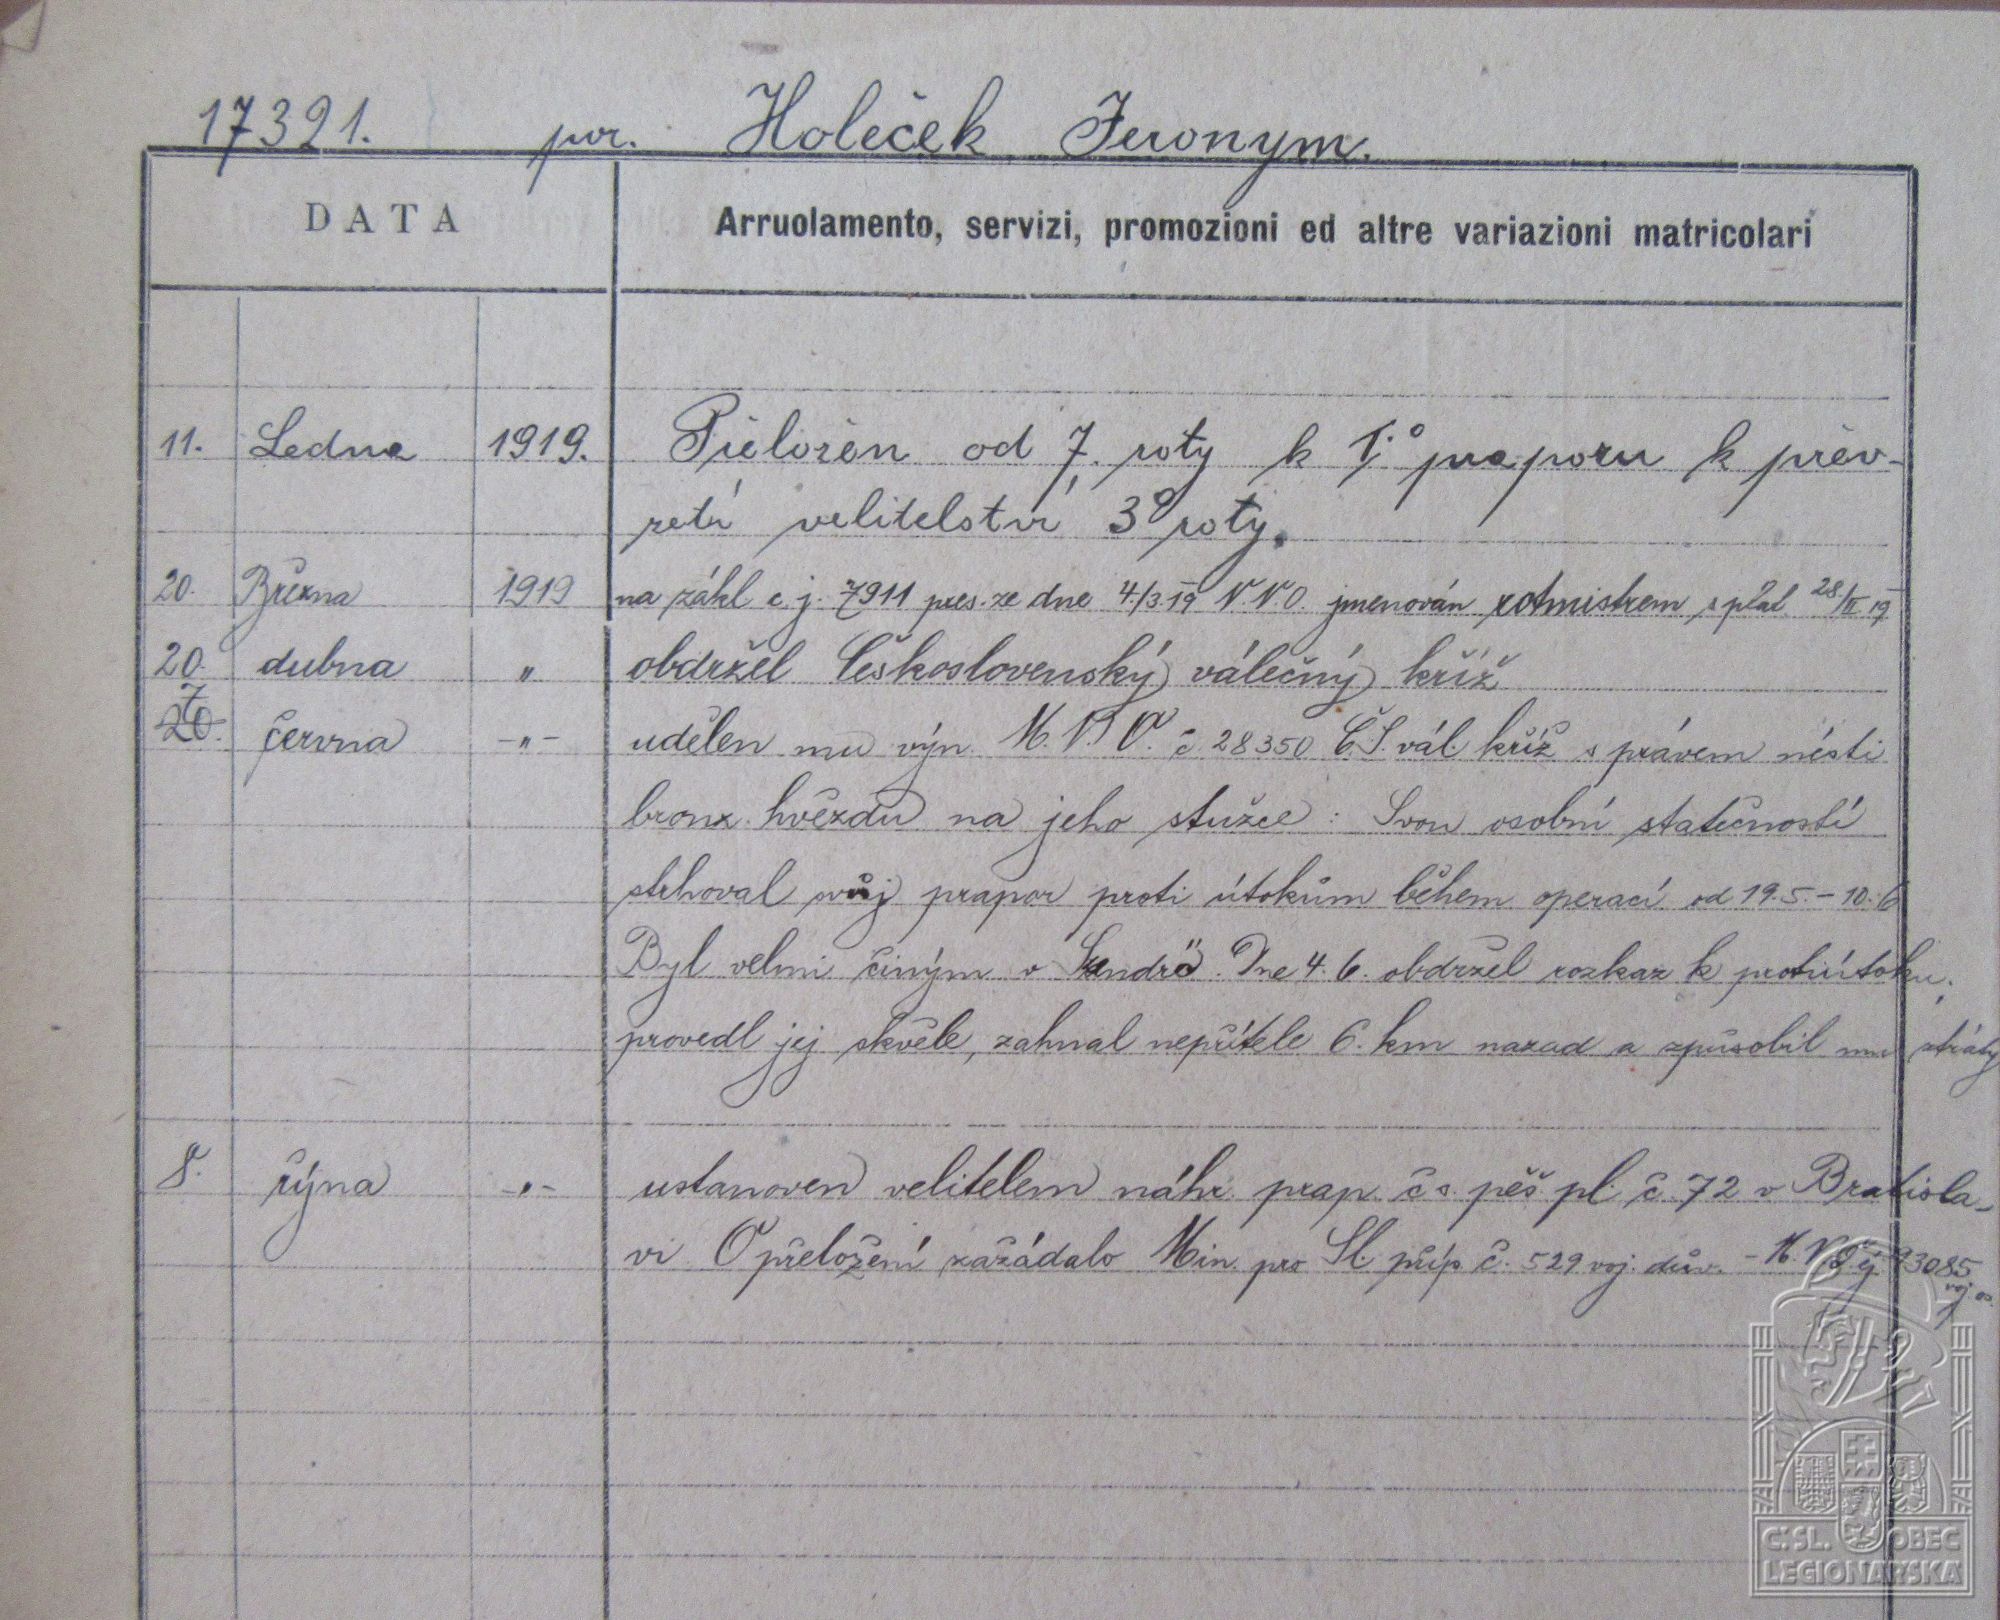 17321. por. Holeček Jeronym.
DATA Arruolamento, servizi, promozioni ed altre variazioni matricolari
11. Ledna 1919. Přeložen od 7. roty k praporu k přev-
zetí velitelství 3º roty.
20. Března 1919 na zákl č. j. 7911 pres. ze dne 4./3.19 jmenován rotmistrem s plat 28/II 19
20. dubna " obdržel Československý válečný kříž
20. 7 června -"- udělen mu výn. č. 28350 Č.S. vál. kříž s právem nésti
bronz. hvězdu na jeho stužce: Svou osobní statečností
strhoval svůj prapor proti útokům během operací od 19.5. - 10.6
Byl velmi činým v Szendrö. Dne 4. 6. obdržel rozkaz k protiútoku,
provedl jej skvěle, zahnal nepřítele 6. km nazad a způsobil mu ztráty
8. října -"- ustanoven velitelem náhr. prap. čs. pěš. pl. č. 72 v Bratisla-
vi. O přeložení zažádalo Min. pro Sl. příp. č. 529 voj. dův. - 93085
voj.
Č.SL. OBEC
LEGIONÁŘSKÁ